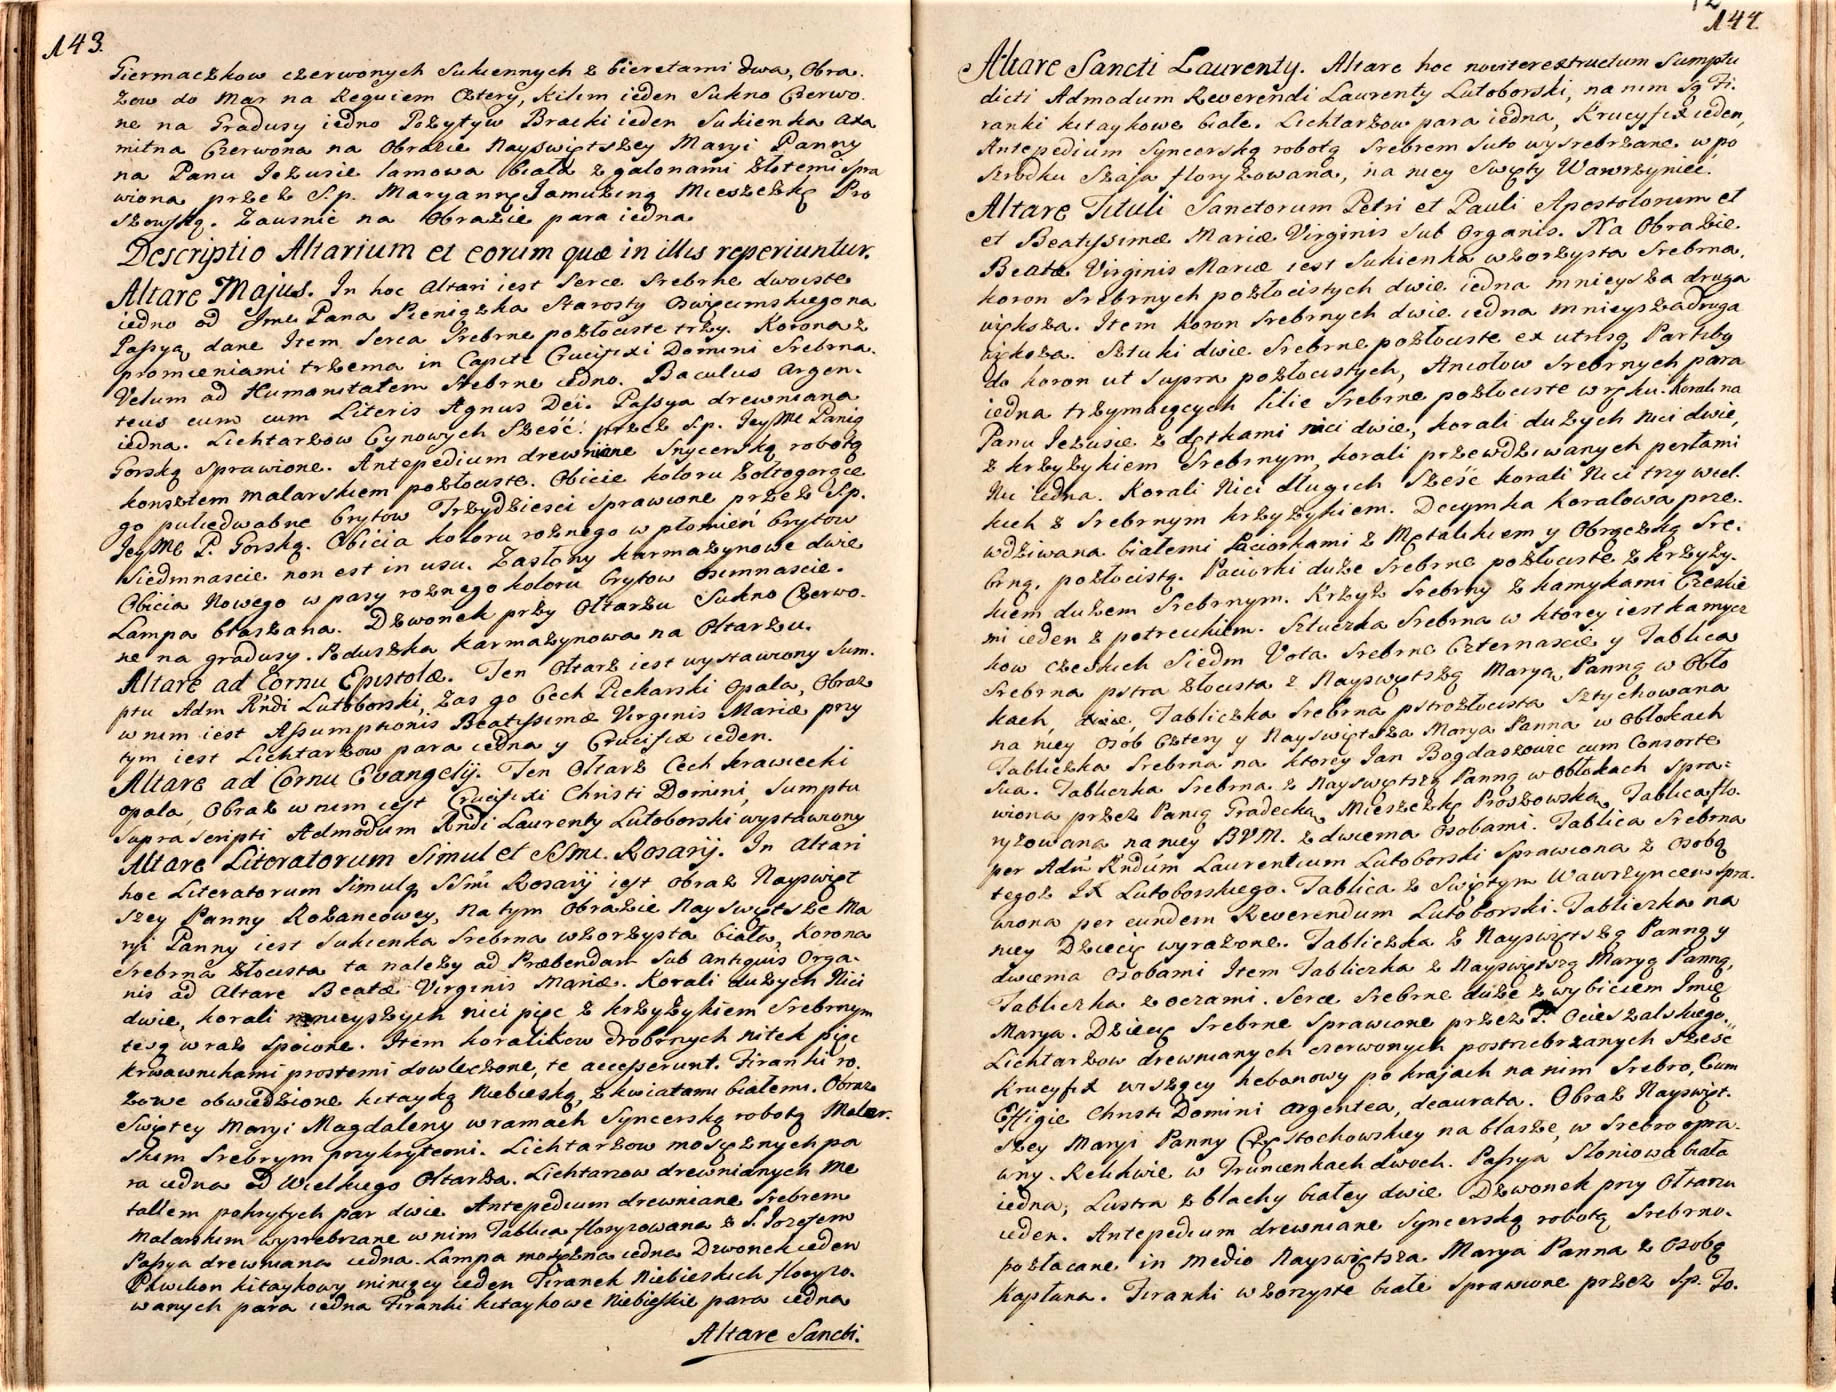 143.
Giermaczkow czerwonych Sukiennych z bieretami dwa, Obra.
zow do Mar na Requiem Cztery, Kilim ieden Sukno Czerwo.
ne na Gradusy iedno Pozytyw Bracki ieden Sukienka axa
mitna Czerwona na Obrazie Nayswiętszey Maryi Panny
na Panu Jezusie lamowa biała z galonami złotemi spra
wiona przez S.p. Maryannę Jamuzing Mieszczkę Pro
szowską. Zausnic na Obrazie para iedna
Descriptio Altarium et eorum quæ in illis reperiuntur.
Altare Majus. In hoc Altari iest Serce Srebrne dwoiste
iedno od Jme Pana Pieniążka Starosty Oswięcimskiego na
Passyą dane Item Serca Srebrne pozłociste trzy. Korona z
promieniami trzema in Capite Crucifixi Domini Srebrna.
Velum ad Humanitatem Srebrne iedno. Baculus Argen.
teus cum cum Literis Agnus Dei. Passya drewniana
iedna. Lichtarzow Cynowych Sześć przez S.p. JeyMc Panią
Gorską Sprawione. Antepedium drewniane Snycerską robotą
konsztem malarskiem pozłociste. Obicie koloru żołtogorące
go pułiedwabne brytow Trzydziesci Sprawione przez S.p.
JeyMc P. Gorską. Obicia koloru roznego w płomień brytow
Siedmnascie non est in usu. Zasłony karmazynowe dwie
Obicia Nowego w pasy roznego koloru brytow osimnascie.
Lampa blaszana. Dzwonek przy Ołtarzu Sukno Czerwo.
ne na gradusy. Poduszka karmazynowa na Ołtarzu.
Altare ad Cornu Epistolæ. Ten Ołtarz iest wystawiony Sum.
ptu Adm Rndi Lutoborski, zas go Cech Piekarski Opala, Obraz
w nim iest Assumptionis Beatissimæ Virginis Mariæ przy
tym iest Lichtarzow para iedna y Crucifix ieden.
Altare ad Cornu Evangelij. Ten Ołtarz Cech Krawiecki
opala, Obraz w nim iest Crucifixi Christi Domini, Sumptu
supra scripti Admodum Rndi Laurenty Lutoborski wystawiony
Altare Literatorum Simul et SSmi. Rosarij. In Altari
hoc Literatorum Simulq SSmi Rosarij iest Obraz Nayswięt
szey Panny Rozancowey, Na tym Obrazie Nayswiętsze Ma
ryi Panny iest Sukienka Srebrna wzorzysta biała, Korona
Srebrna złocista ta nalezy ad Præbendam Sub antiquis Orga.
nis ad Altare Beatæ Virginis Mariæ. Korali duzych Nici
dwie, korali mnieyszych nici pięc z krzyzykiem Srebrnym
te są wraz spoione. Item koralikow drobnych nitek pięc
krwawnikami prostemi dowleczone, te accesserunt. Firanki ro.
zowe obwiedzione kitayką Niebieską, z kwiatami białemi. Obraz
Swiętey Maryi Magdaleny w ramach Syncerską robotą Malar.
skim Srebrym przykrytemi. Lichtarzow mosięznych pa
ra iedna od Wielkiego Ołtarza. Lichtarzow drewnianych Me
tallem pokrytych par dwie Antepedium drewniane Srebrem
Malarskim wysrebrzane w nim Tablica floryzowana z S. Jozefem
Passya drewniana iedna. Lampa mosięzna iedna Dzwonek ieden
Pawilion kitaykowy miniący ieden Firanek Niebieskich floryzo.
wanych para iedna Firanki kitaykowe Niebieskie para iedna
Altare Sancti.
144.
Altare Sancti Laurenty. Altare hoc noviter extructum Sumptu
dicti Admodum Reverendi Laurenty Lutoborski, na nim Są Fi.
ranki kitaykowe białe. Lichtarzow para iedna, Krucyfix ieden,
Antepedium Syncerską robotą Srebrem Suto wysrebrzane w po
szrodku Szaja floryzowana, na niey Swięty Wawrzyniec.
Altare Tituli Sanctorum Petri et Pauli Apostolorum et
et Beatissimæ Mariæ Virginis Sub Organis. Na Obrazie
Beatæ Virginis Mariæ iest Sukienka wzorzysta Srebrna,
koron Srebrnych pozłocistych dwie iedna mnieysza druga
większa. Item koron Srebrnych dwie iedna mnieysza druga
większa. Sztuki dwie Srebrne pozłociste ex utrisq Partiby
do koron ut supra pozłocistych, Aniołow Srebrnych para
iedna trzymaiących lilie Srebrne pozłociste w ręku. Korali na
Panu Jezusie z dętkami nici dwie, korali duzych nici dwie,
z krzyzykiem Srebrnym, korali przewdziwanych perłami
Nić iedna. Korali Nici długich Sześć korali Nici trzy wiel.
kich z Srebrnym krzyzykiem. Decymka koralowa prze.
wdziwana białemi Paciorkami z Mętalikiem y Obrączką Sre.
brną, pozłocistą. Paciorki duze Srebrne pozłociste z krzyzy.
kiem duzem Srebrnym. Krzyz Srebrny z kamykami Czeskie
mi ieden z potrcukiem. Sztuczka Srebrna w ktorey iest kamycz
kow czeskich Siedm Vota Srebrne Czternascie y Tablica
Srebrna pstra złocista z Nayswiętszą Maryą Panną w Obło
kach, dwie, Tabliczka Srebrna pstrozłocista Sztychowana
na niey Osób Cztery y Nayswiętsza Marya Panna w Obłokach
Tabliczka Srebrna na ktorey Jan Bogdaszowic cum Consorte
Sua. Tabliczka Srebrna z Nayswiętszą Panną w Obłokach Spra=
wiona przez Panią Gradecką Mieszczkę Proszowską Tablica flo.
ryzowana na niey BVM. z dwiema Osobami. Tablica Srebrna
per Adm Rndum Laurentium Lutoborski Sprawiona z osobą
tegoz JX Lutoborskiego. Tablica z Swiętym Wawrzyncem spra.
wiona per eundem Reverendum Lutoborski. Tabliczka na
niey Dziecię wyrazone. Tabliczka z Nayswiętszą Panną y
dwiema osobami Item Tabliczka z Nayswiętszą Maryą Panną,
Tabliczka z oczami. Serce Srebrne duze z wybiciem Jmię
Marya. Dziecię Srebrne Sprawione przez P. Ocieszalskiego.
Lichtarzow drewnianych czerwonych postrzebrzanych Szesc
Krucyfix wiszący hebanowy po krajach na nim Srebro, Cum
Effigie Christi Domini argentea, deaurata. Obraz Nayswięt.
szey Maryi Panny Częstochowskiey na blasze, w Srebro opra.
wny. Relikwie w Trunienkach dwoch. Passya Słoniowa biała
iedna, Lustra z blachy białey dwie Dzwonek przy Ołtarzu
ieden. Antepedium drewniane Syncerską robotą Srebrno.
pozłacane in medio Nayswiętsza Marya Panna z Osobą
Kapłana. Firanki wzorzyste białe Sprawione przez S.p. To.